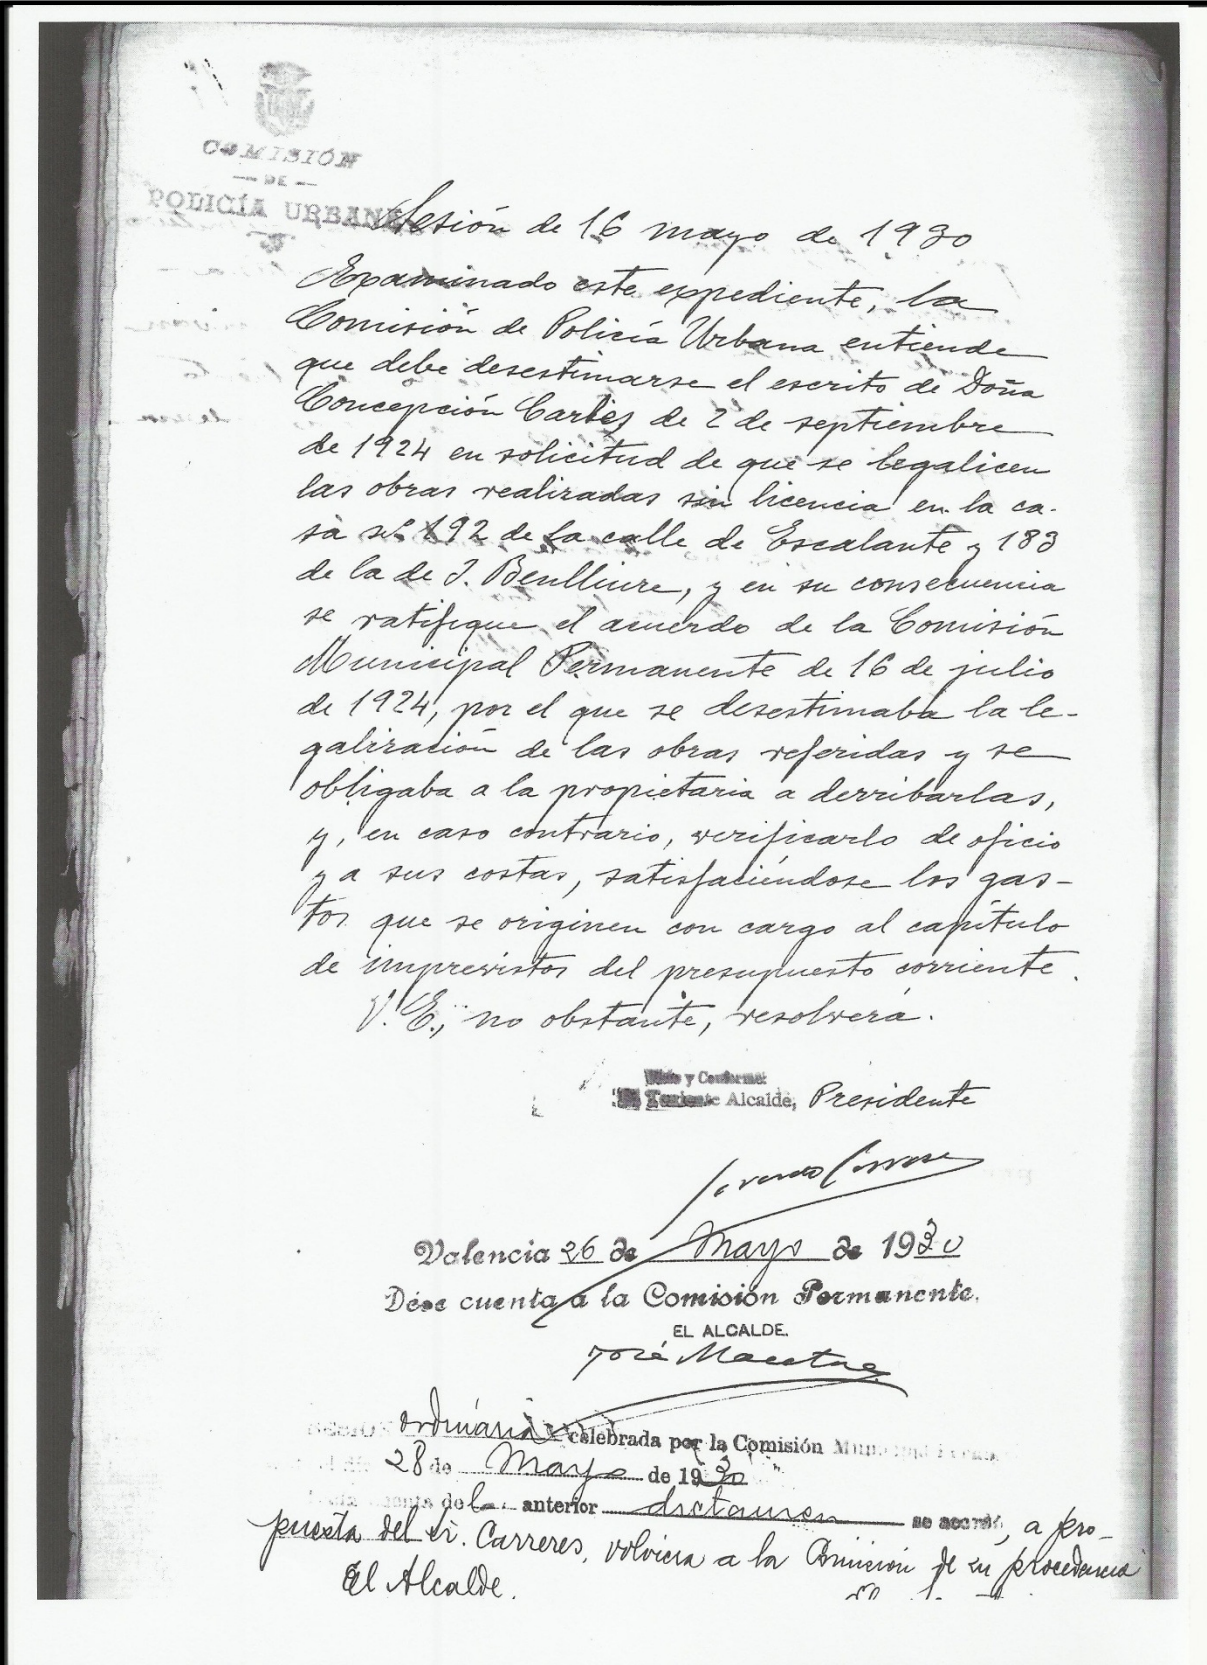 COMISIÓN
— DE —
POLICÍA URBANA
Sesión de 16 mayo de 1930
Examinado este expediente, la
Comisión de Policía Urbana entiende
que debe desestimarse el escrito de Doña
Concepción de 2 de septiembre
de 1924 en solicitud de que se legalicen
las obras realizadas sin licencia en la ca-
sa nº 192 de la calle de Escalante y 183
de la de J. Benlliure, y en su consecuencia
se ratifique el acuerdo de la Comisión
Municipal Permanente de 16 de julio
de 1924, por el que se desestimaba la le-
galización de las obras referidas y se
obligaba a la propietaria a derribarlas,
y, en caso contrario, verificarlo de oficio
y a sus costas, satisfaciéndose los gas-
tos que se originen con cargo al capítulo
de imprevistos del presupuesto corriente.
V. E., no obstante, resolverá.
Visto y Conforme:
El Teniente Alcalde, Presidente
Valencia 26 de Mayo de 1930
Dése cuenta a la Comisión Permanente.
EL ALCALDE.
José Maestre
ordinaria celebrada por la Comisión Municipal
28 de Mayo de 1930
cuenta del anterior dictamen se acordó, a pro-
puesta del Sr. Carreres, volviera a la Comisión de su procedencia
El Alcalde.